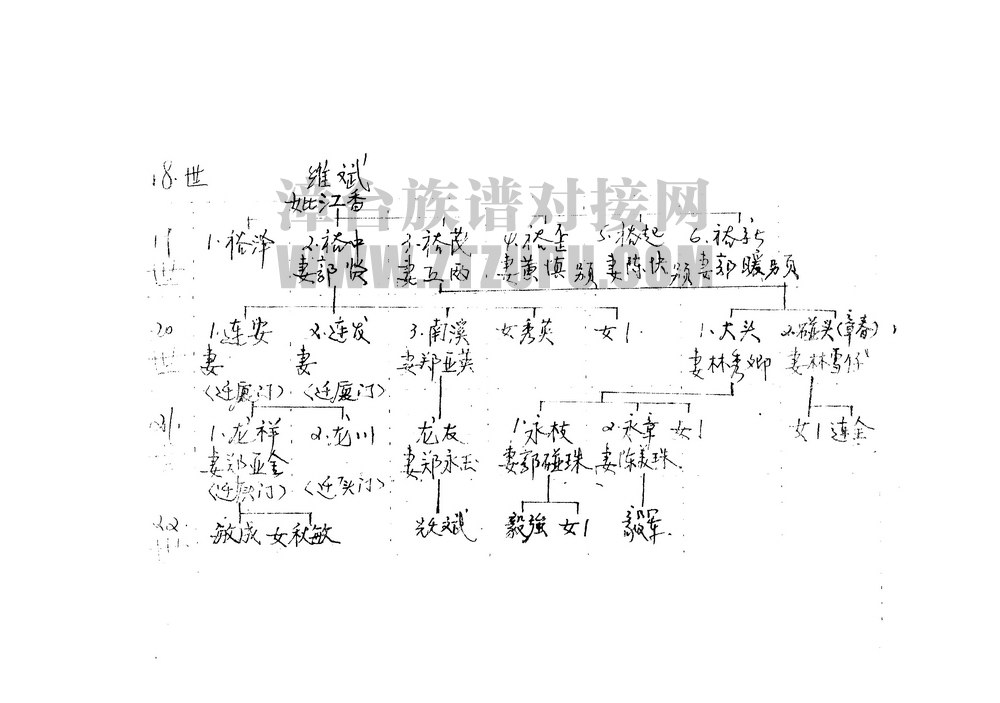 18.世 维斌
妣江香
漳台族谱对接网
WWW.ZTZUPU.COM
19 1.裕泽 2.裕中 3.裕茂 4.裕歪 5.裕起 6.裕
世 妻郭 妻 妻黄慎 妻陈快 妻郭暖
20 1.连安 2.连发 3.南溪 女秀英 女1 1.大头 2.碰头(章春)
世 妻 妻 妻郑亚英 妻林秀卿 妻林雪仔
(迁厦门) (迁厦门)
21. 1.龙祥 2.龙川 龙友 1.永枝 2.永章 女1 女1 连金
妻郑亚金 妻郑永玉 妻郭碰珠 妻陈美珠
(迁厦门) (迁厦门)
22. 敏成 女秋敏 斌 毅強 女1 毅军